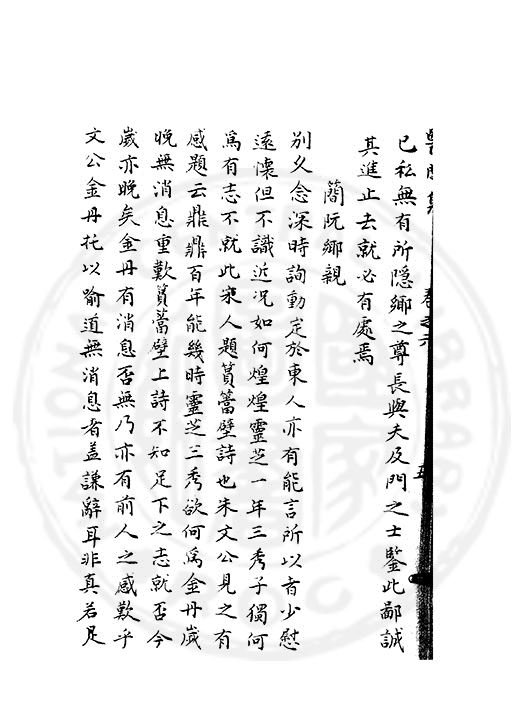 醫閭集 卷之六 五
已私無有所隐鄉之尊長與夫及門之士鑒此鄙誠
其進止去就必有處焉
簡阮鄉親
别久念深時詢動定於東人亦有能言所以者少慰
遠懷但不識近况如何煌煌靈芝一年三秀予獨何
爲有志不就此宋人題篔簹壁詩也朱文公見之有
感題云鼎鼎百年能幾時靈芝三秀欲何爲金丹歲
晚無消息重歎篔簹壁上詩不知足下之志就否今
歲亦晚矣金丹有消息否無乃亦有前人之感歎乎
文公金丹托以喻道無消息者盖謙辭耳非真若是